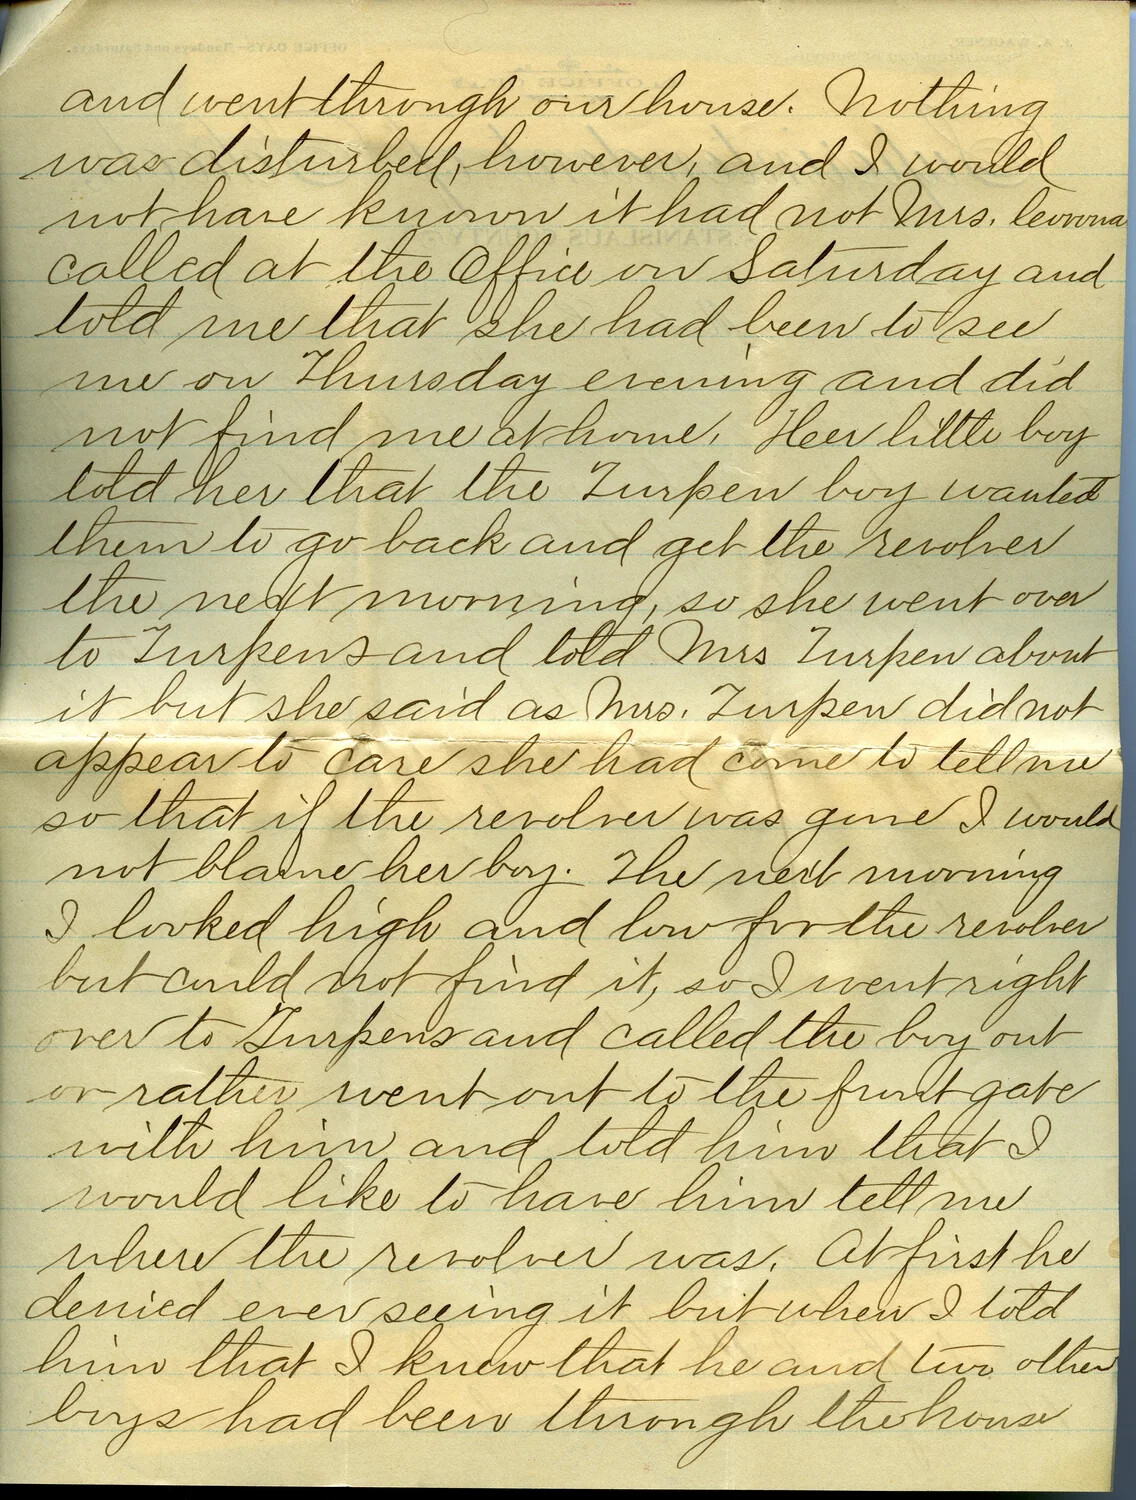 and went through our house. Nothing
was disturbed, however, and I would
not have known it had not Mrs.
called at the Office on Saturday and
told me that she had been to see
me on Thursday evening and did
not find me at home. Heer little boy
told her that the Turpen boy wanted
them to go back and get the revolver
the next morning, so she went over
to Turpens and told Mrs Turpen about
it but she said as Mrs. Turpen did not
appear to care she had come to tell me
so that if the revolver was gone I would
not blame her boy. The next morning
I looked high and low for the revolver
but could not find it, so I went right
over to Turpens and called the boy out
or rather went out to the front gate
with him and told him that I
would like to have him tell me
where the revolver was. At first he
denied ever seeing it but when I told
him that I knew that he and two other
boys had been through the house